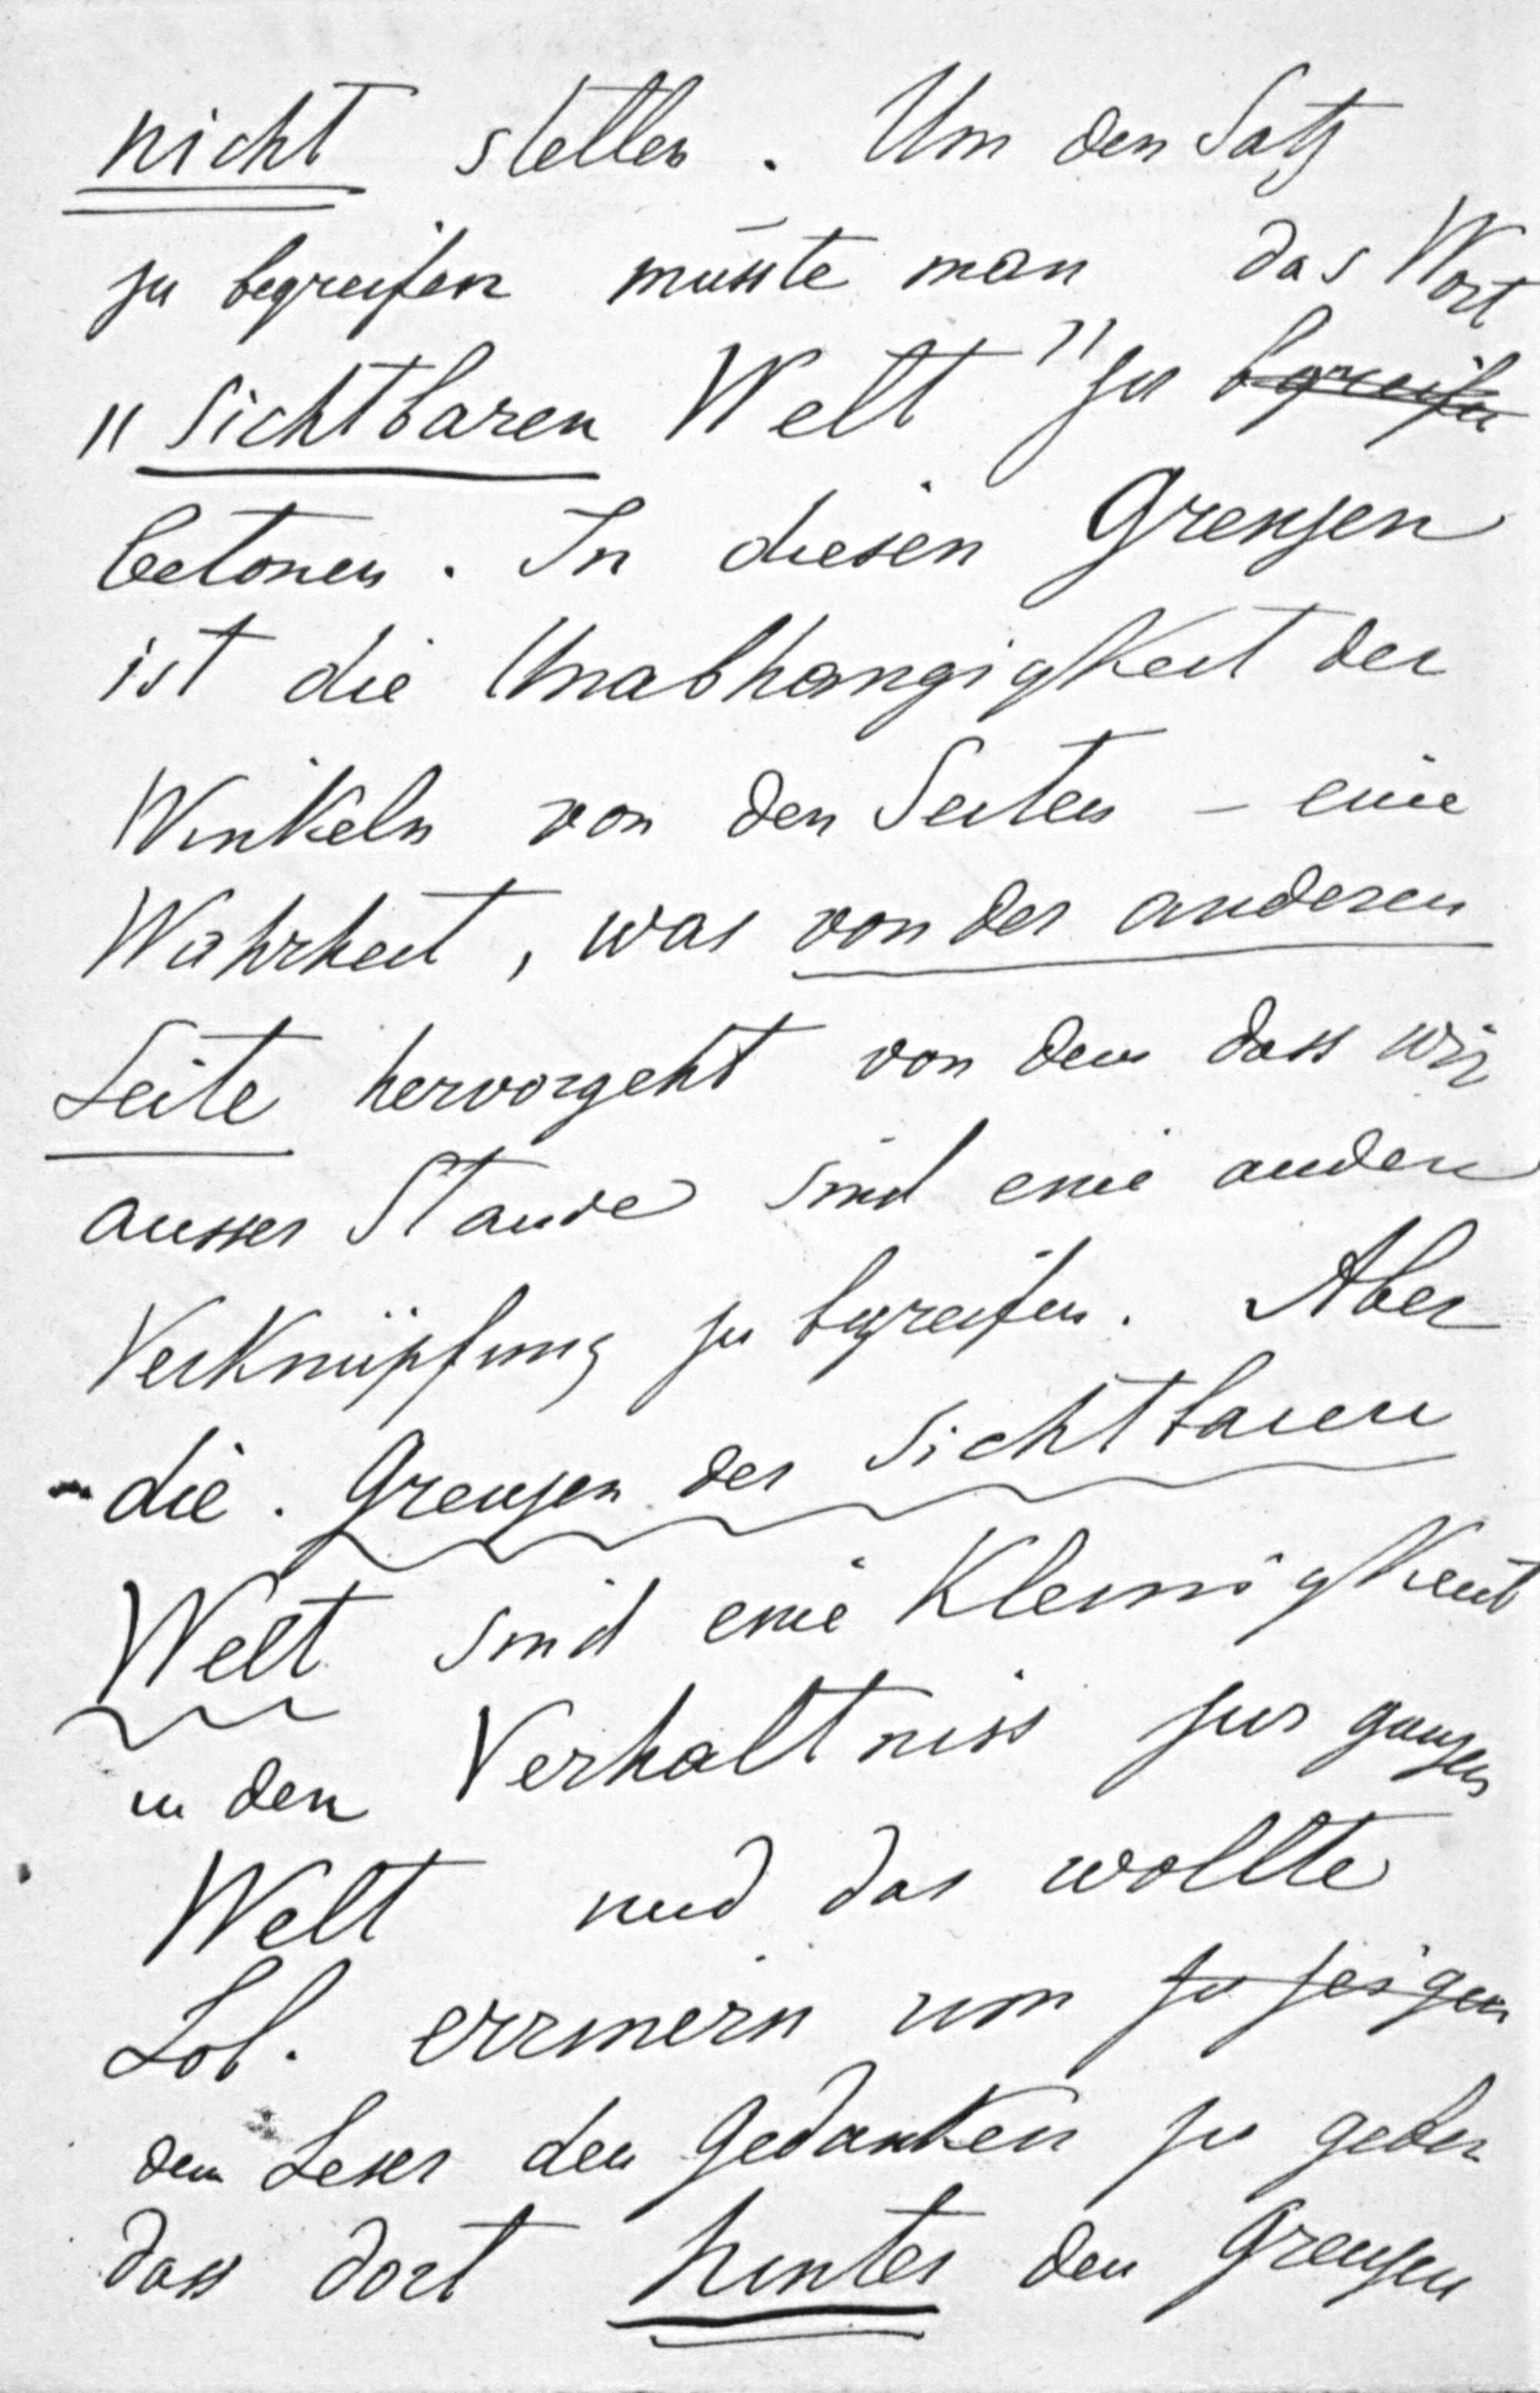 nicht stellen. Um den Satz
zu begreifen müsste man das Wort
„sichtbaren Welt" zu begreifen
betonen. In diesen Grenzen
ist die Unabhangigkeit der
Winkeln von den Seiten – eine
Wahrheit, was von der anderen
Seite hervorgeht von dem dass wir
ausser Stande sind eine andere
Verknüpfung zu begreifen. Aber
die Grenzen der sichtbaren
Welt sind eine Kleinigkeit
in dem Verhaltniss zur ganzen
Welt und das wollte
Lob. errinern um zu zeigen
dem Leser den Gedanken zu geben
dass dort hinter den Grenzen